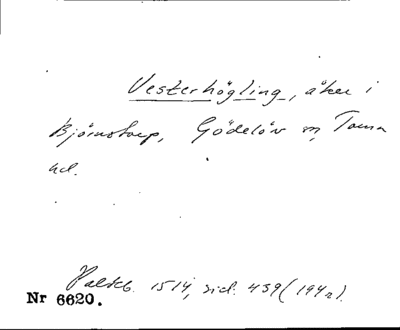 Vesterhögling, åker i
Björnstorp, Gödelöv sn, Torna
hd.
Palteb. 1514, sid. 439 (194 r).
Nr 6620.